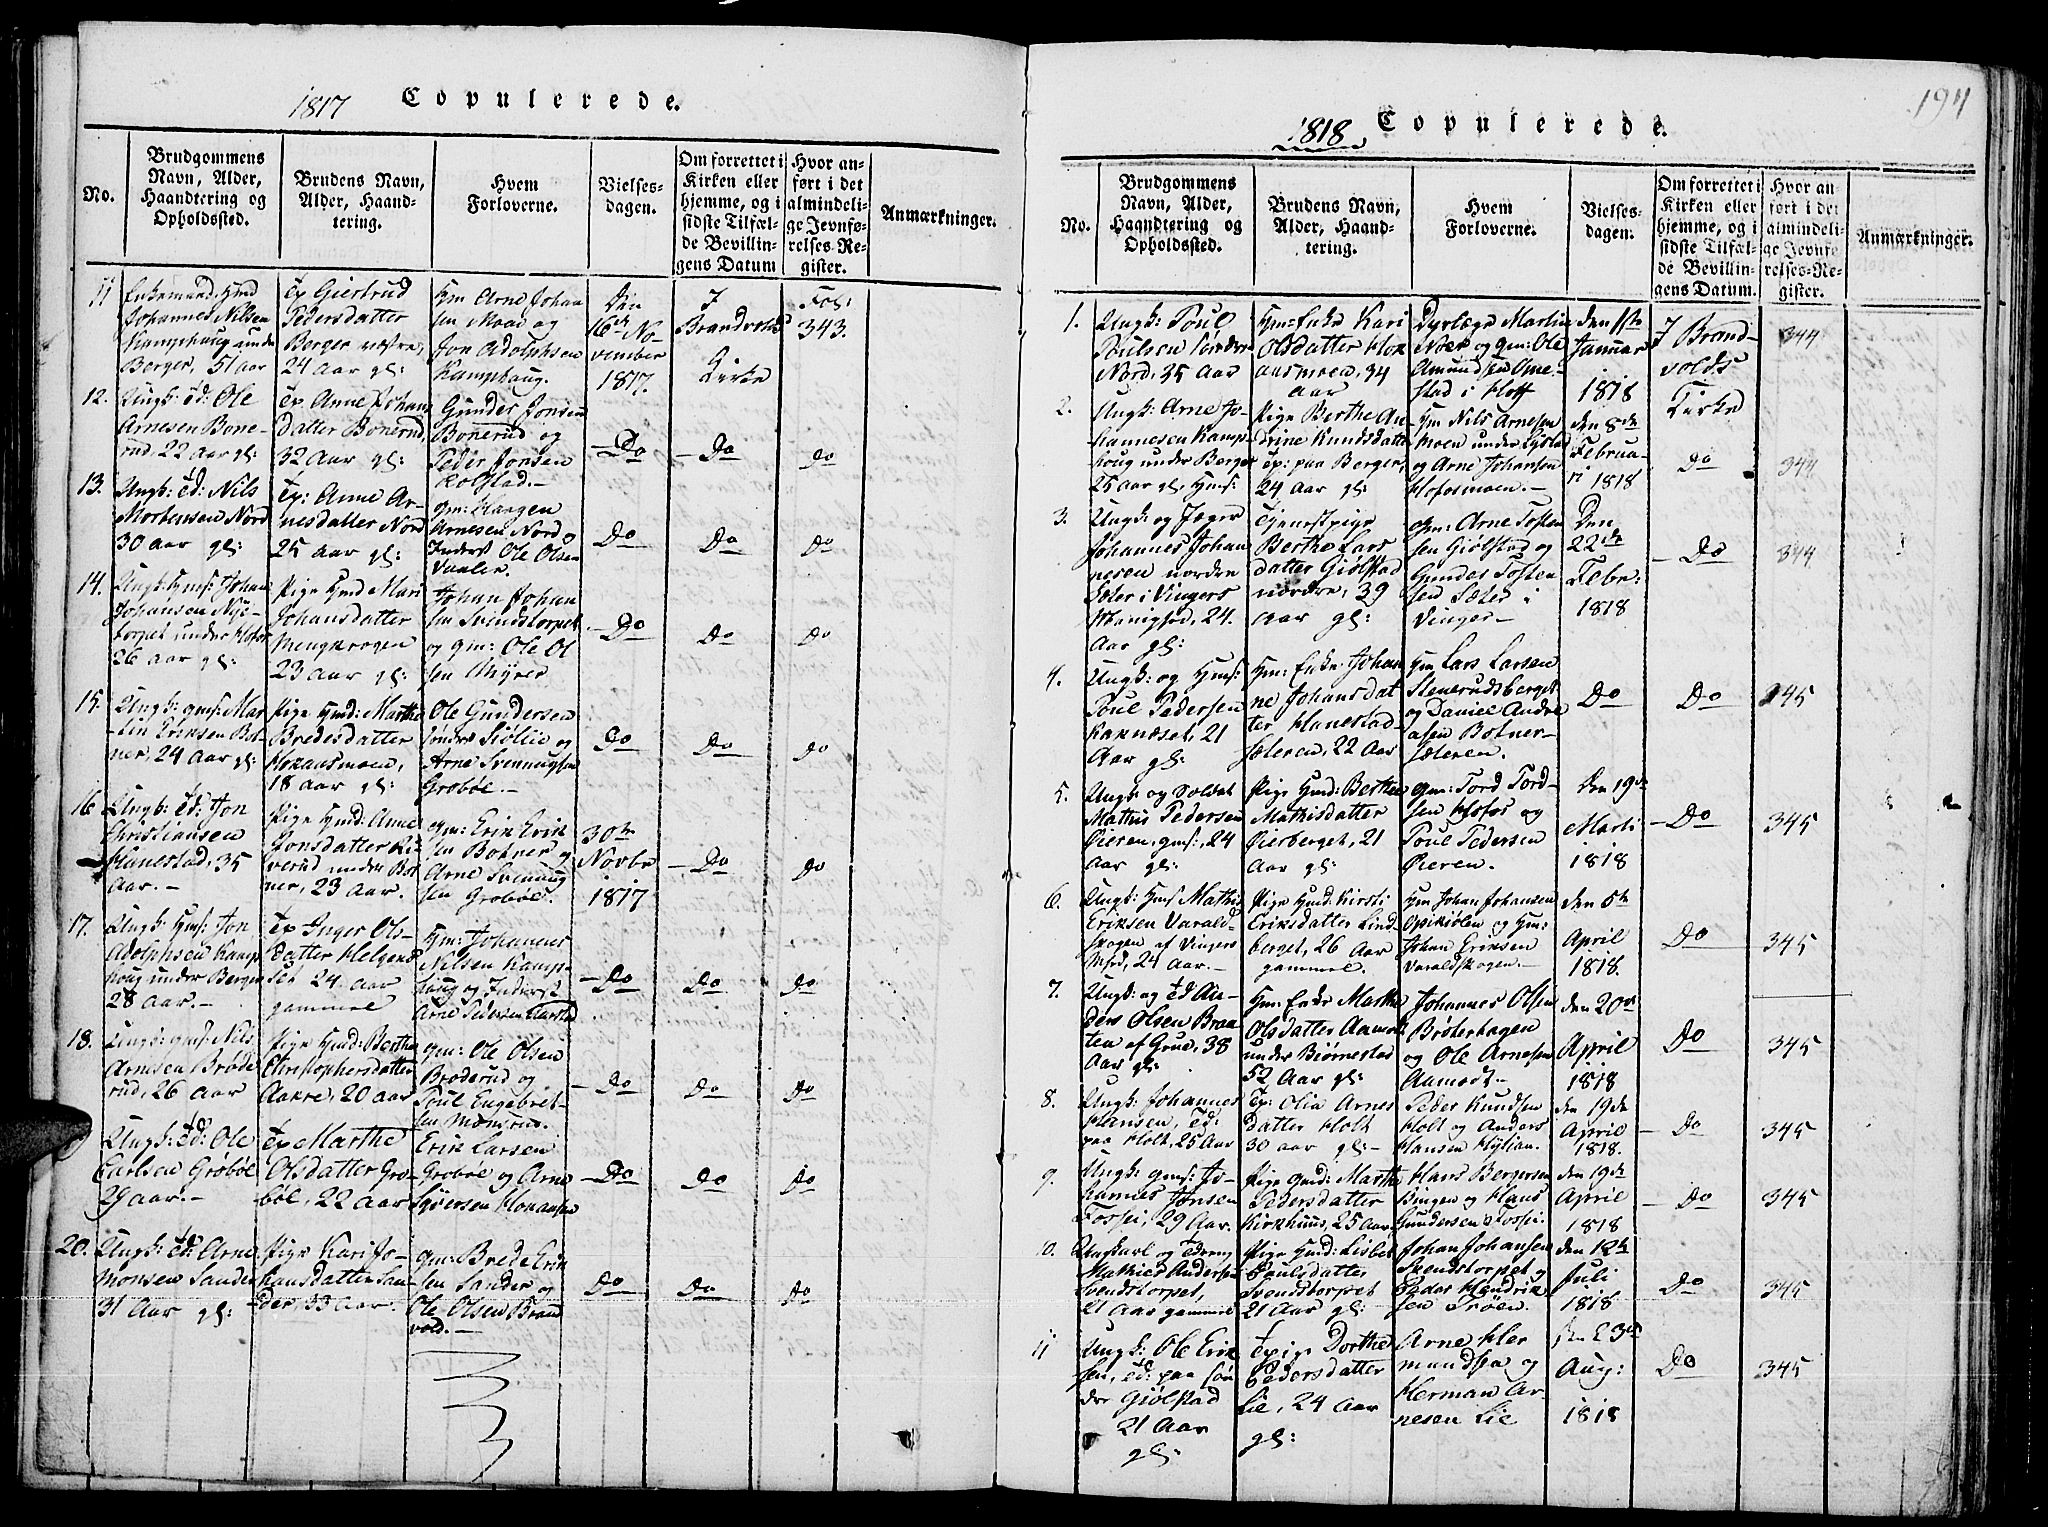 1817 Copulerede.
No.
Brudgommens
Navn, Alder,
Haandtering og
Opholdssted.
Brudens Navn,
Alder, Haand-
tering.
Hvem
Forloverne.
Vielses-
dagen.
Om forrettet i
Kirken eller
hjemme, og i
sidste Tilfæl-
de Bevillin-
gens Datum
Hvor an-
ført i det
almindeli-
ge Jevnfø-
relses-Re-
gister.
Anmærkninger.
11
Enkemand
Johannes Nilsen
Kamphoug under
Berger, 51 aar
Tp Giertrud
Pedersdatter
Berger
24 Aar gl:
Arne Johan
sen Moen og
Jon Adolphsen
Kamphaug.
Den
16de No-
vember
1817.
I
Brandvolds
Kirke
Fol:
343.
12.
Ungk: td: Ole
Arnesen Bone-
rud, 22 Aar gl:
Tp. Anne Johans
datter Bonerud,
32 Aar gl:
Gunder Jonsen
Bonerud og
Peder Jonsen
Kolstad.-
Do
Do
Do
13.
Ungk: td: Nils
Mortensen Nord
30 aar gl:
Tp: Anne Ar-
nesdatter Nord
25 aar gl:
gm: Haagen
Arnesen Nord
Ole Olsen
Do
Do
Do
14.
Johan
Johansen Nye-
torpet under Hofos
26 aar gl:
Pige Hmd Mari
Johansdatter
Mengkrogen
23 Aar gl:
Johan Johan
sen Svendstorpet
og gm: Ole Ol
sen Myrer
Do
Do
Do
15.
Ungk: gms: Mar
tin Eriksen Bot-
ner, 24 Aar gl:
Pige Hmd: Marthe
Bredesdatter
Kokaasmoen,
18 aar gl:
Ole Gundersen
søndre Siølie og
Arne Svenungsen
Grobøl.-
Do
Do
Do
16.
Ungk: td: Jon
Christiansen
Hanestad, 35
Aar.-
Pige Hmd: Anne
Jonsdatter
under Bot
ner, 23 Aar.
gm: Erik Erik
sen Botner og
Arne Svenung
sen Grobøl.
30te
Novbr
1817
Do
Do
17.
Ungk: Hms: Jon
Adolphsen Kamp
houg under Berger
28 Aar.-
Tp Inger Ols-
datter Helgend
set 24 aar
gammel
Hm: Johannes
Nilsen Kamp-
haug og
Arne Pedersen
Do
Do
Do
18.
Ungk: gms: Nils
Arnesen Brøde
rud, 26 aar
Pige Hmd: Berthe
Christophersdatter
Aakre, 20 aar
gm: Ole Olsen
Broderud og
Poul Engebret-
sen Momrud.
Do
Do
Do
Ungk: td: Ole
Carlsen Grobøl
29 aar.-
Tp Marthe
Olsdatter Gro-
bøl, 22 Aar
Erik Larsen
Grobøl og Arne
Syversen
Do
Do
Do
20.
Ungk: td: Arne
Monsen Sander
31 Aar gl:
Pige Kari Jo-
hansdatter San-
der, 33 Aar.
gm: Brede Erik
sen Sander og
Ole Olsen Brand
vold.-
Do
Do
Do
194
1818 Copulerede.
No.
Brudgommens
Navn, Alder,
Haandtering og
Opholdssted.
Brudens Navn,
Alder, Haand-
tering.
Hvem
Forloverne.
Vielses-
dagen.
Om forrettet i
Kirken eller
hjemme, og i
sidste Tilfæl-
de Bevillin-
gens Datum.
Hvor an-
ført i det
almindeli-
ge Jevnfø-
relses-Re-
gister.
Anmærkninger.
1.
Ungk: Poul
Poulsen
Nord, 35 Aar
Hm: Enke Kari
Olsdatter Kok
aasmoen, 34
aar
Dyrlæge Martin
Næs og gm: Ole
Amundsen
stad i Hoff
den 11te
Januar
1818
I Brand-
volds
Kirke
344
2.
Ungk: Arne Jo-
hannesen Kamp-
houg under Berger
25 aar gl, Hms:
Pige Berthe An-
drine Knudsdatter
Tp: paa Berger,
24 Aar gl:
Hm Nils Arnesen
moen under
og Arne Johansen
Hofosmoen.-
den 8de
Februa-
ri 1818
Do
344
3.
Ungk: og Jæger
Johannes Johan
nesen nordre
Sæter i Vingers
Menighed, 24.
Aar gl:
Tjenestpige
Berthe Lars
datter Giølstad
nordre, 39
aar gl:
gm: Arne Tosten
sen Giølstad og
Gunder Tosten
sen Sæter i
Vinger-
Den
22de
Febr:
1818
Do
344
4.
Ungk: og Hms:
Poul Pedersen
Kaknæset, 21
Aar gl:
Hm: Enke Johan
ne Johansdat
ter Hanestad-
sæteren, 22 Aar
Hm Lars Larsen
Stenerudsberget
og Daniel Andre
asen Botner-
sæteren.
Do
Do
345
5.
Ungk: og Soldat
Mathis Pedersen
Øieren, gms:, 24
aar gl:
Pige Hmd: Berthe
Mathisdatter
Øierberget, 21
aar gl:
gm: Tord Tord-
sen Hofos og
Poul Pedersen
Øieren.
Den 19de
Marti
1818
Do
345
6.
Ungk: Hms Mathis
Eriksen Varald-
skogen af Vingers
M:hed, 24 Aar.-
Pige Hmd. Kirsti
Eriksdatter Lind-
berget, 26 aar
gammel.
Hm Johan Johansen
og Hm:
Johan Eriksen
Varaldskogen.-
den 5te
April
1818.
Do
345
7.
Ungk: og td An-
ders Olsen Braa
ten af Grue, 38
Aar gl:
Hm: Enke Marthe
Olsdatter Aamodt
under Biørnestad
52 Aar gl:
Johannes Olsen
Brøterhagen
og Ole Arnesen
Aamodt-
den 20de
April
1818
Do
345
8.
Ungk: Johannes
Hansen, td:
paa Holt, 25 Aar
Tp: Olia Arnes
datter Holt
30 aar gl:-
Peder Knudsen
Holt og Anders
Hansen Mylian.
den 19de
April
1818.
Do
345
9.
Ungk: gms: Jo-
hannes Jonsen
Fossei, 29 Aar.
Pige gmd: Marthe
Pedersdatter
Kirkhuus, 25 Aar.
Hans Bergersen
Bingen og Hans
Gundersen Fossei.
den 19de
April
1818
Do
345
10.
Ungkarl og tdreng
Mathies Andersen
Svendstorpet,
21 Aar gammel
Pige Hmd: Lisbet
Paulsdatter
Svendstorpet
21 Aar gl:
Johan Johansen
Svendstorpet og
Peder Hendrik
sen Trøen.
den 12te
Juli
1818
Do
345
11
Ungk: Ole Erik
sen, td: paa søn
dre Giølstad
21 Aar
gl:
Tpige Dorthe
Pedersdatter
Lie, 24 Aar
gl:
Arne Her
mundsen og
Herman Ar-
nesen Lie
den 23de
Aug:
1818
Do
345